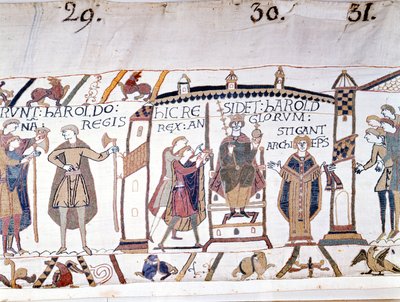 29. 30. 31.
RVNT: hAROLDO:
NA REGIS
hIC RE SIDET: hAROLD
REX: AN GLORVM:
STIGANT
ARChI EPS